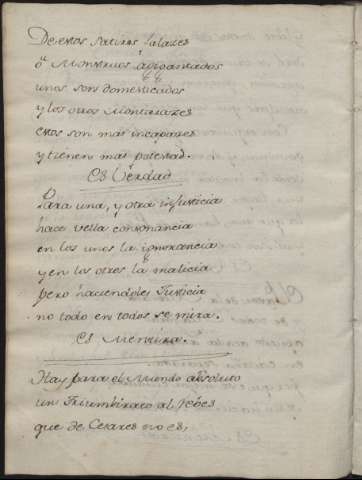 De estos Satiros falazes
ô Monstruos agigantados
unos son domesticados
y los otros Montarazes
estos son mas incapazes
y tienen mas potestad.
Es Verdad
Para una, y otra injusticia
hace vella consonancia
en los unos la ignorancia
y en los otros la malicia
pero haciendole Justicia
no todo en todos se mira.
Es Mentira.
Hay para el Mundo absoluto
un Triumbirato al
que de Cesares no es,